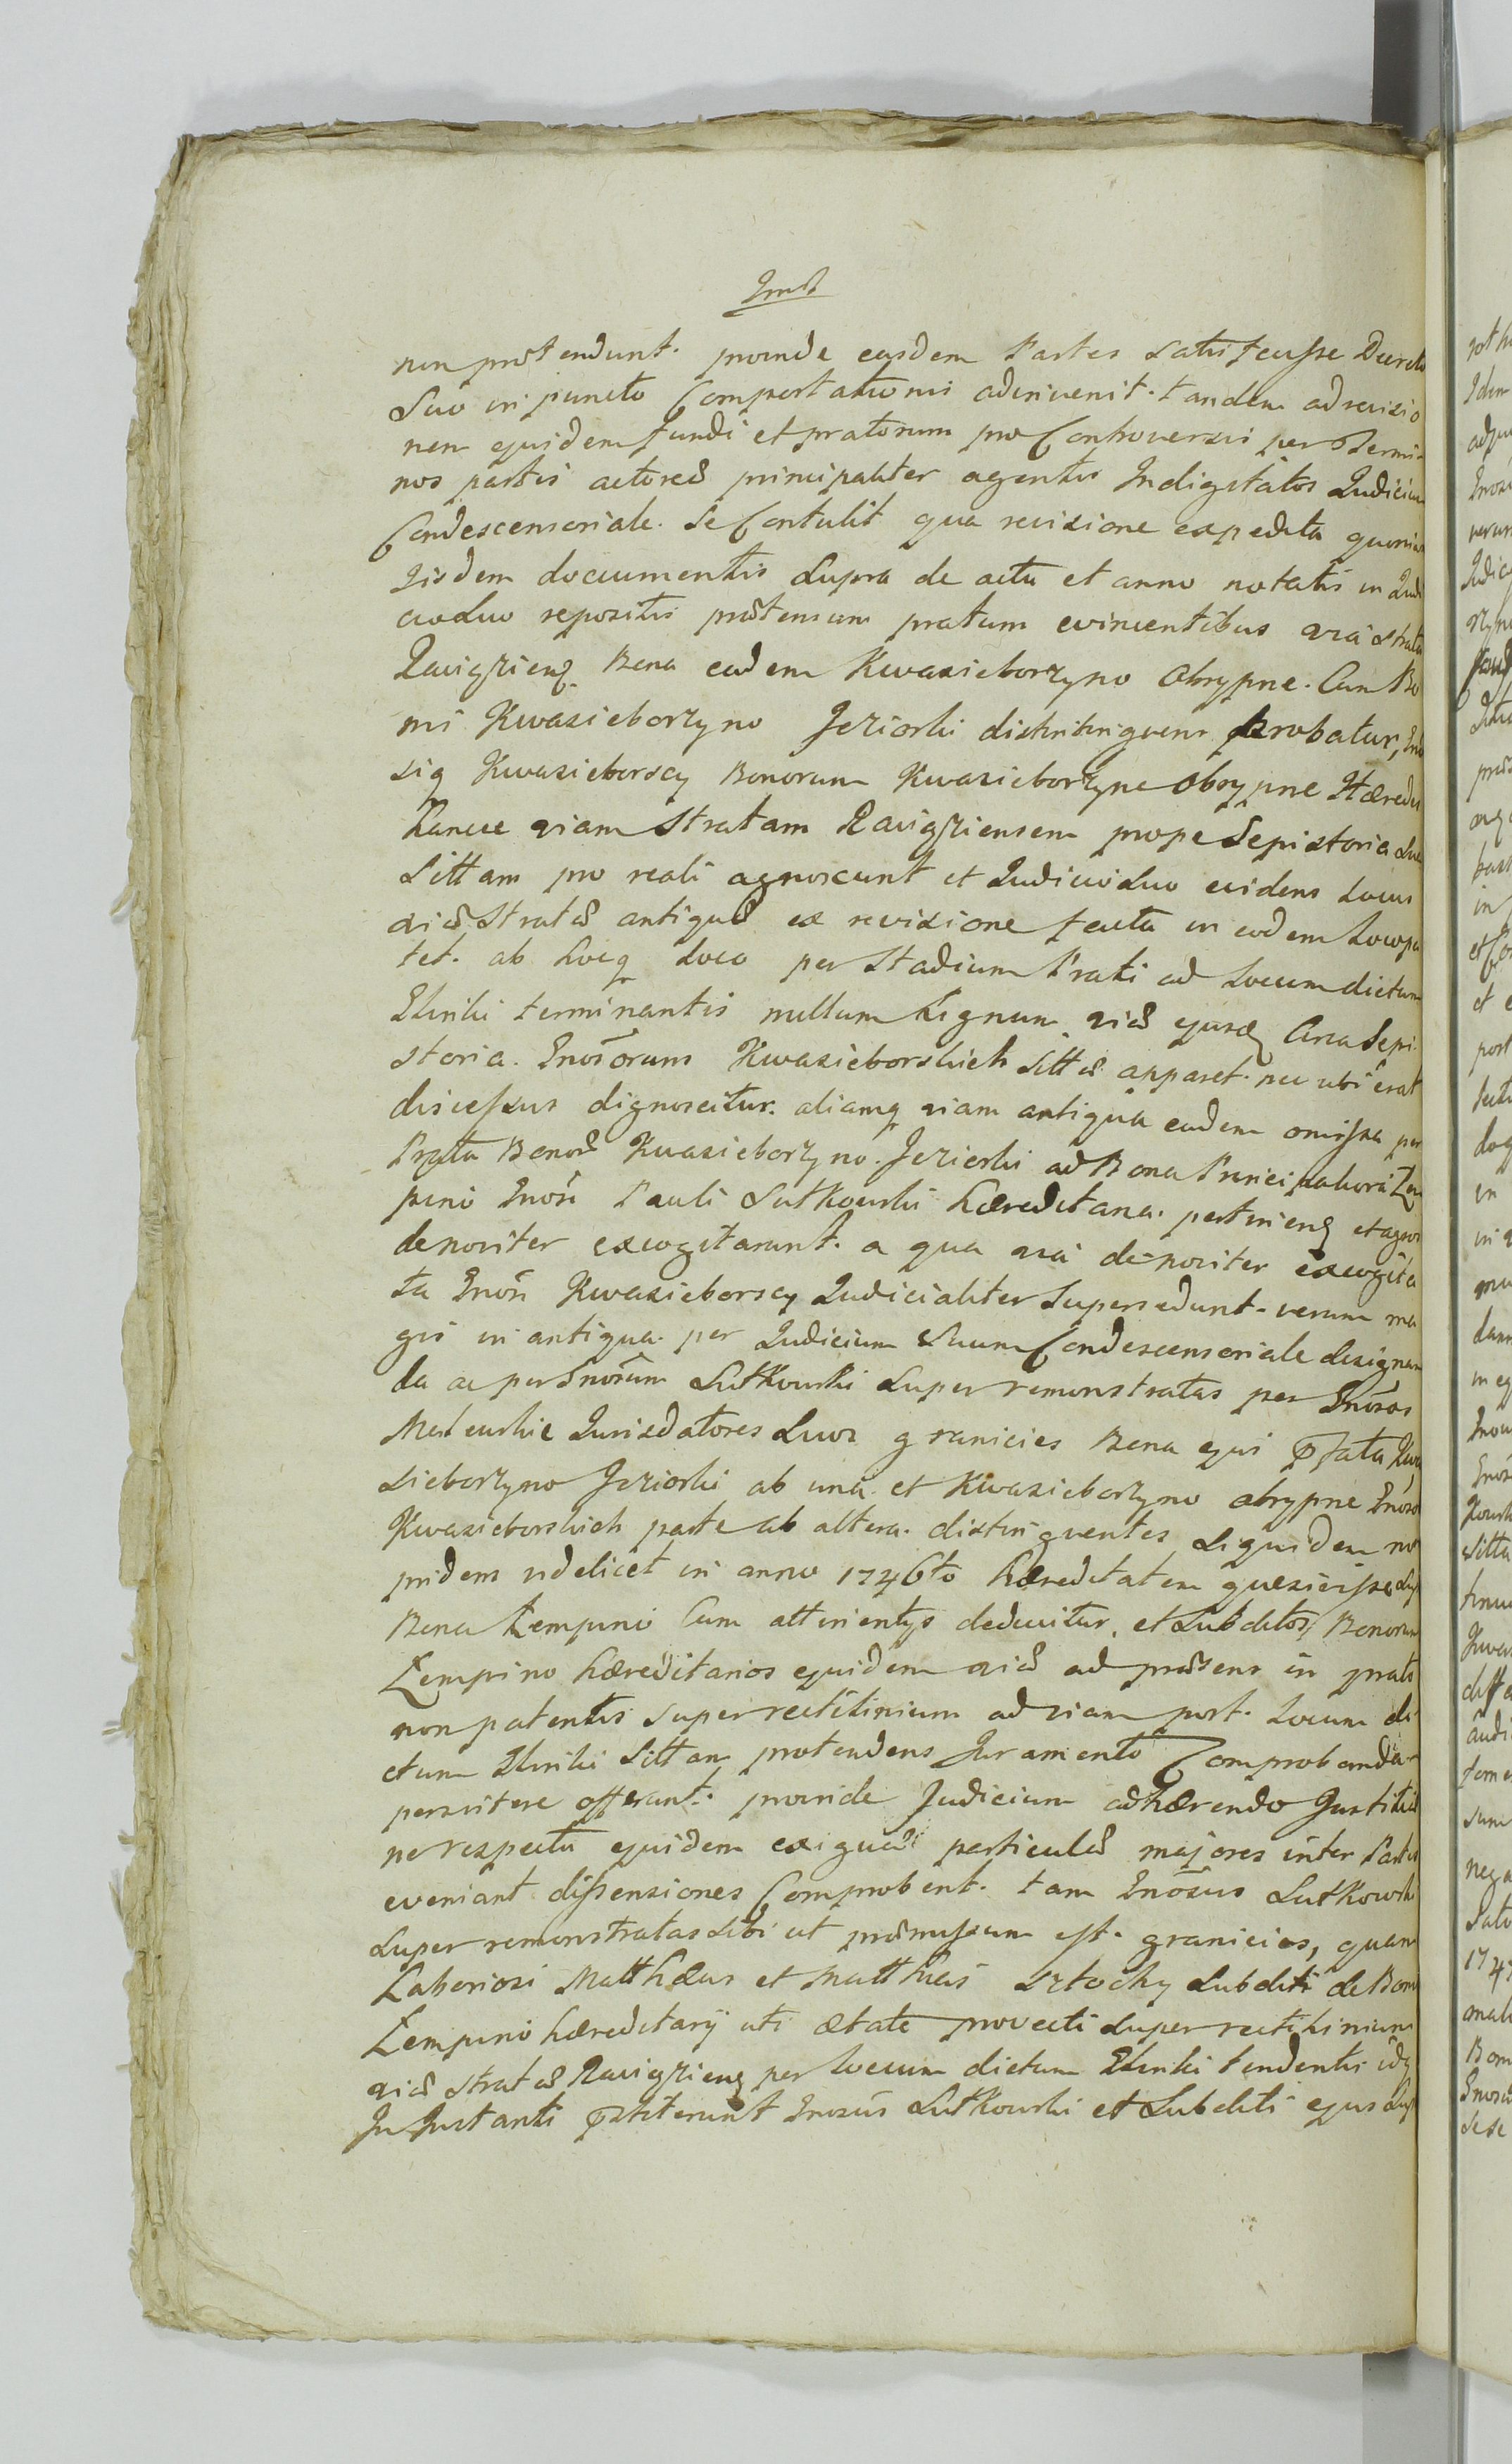 non prætendunt. proinde easdem Partes satisfecisse Decreto
Suo in puncto Comportationis adinvenit. tandem ad revisio
nem ejusdem fundi et pratorum pro Controversis per Termi
nos partis actoreæ principaliter agentis Indigitatos Judicium
Condescensoriale. Se Contulit qua revisione expedita quoniam
Iisdem documentis supra de actu et anno notatis in Judi
cio suo repositis prætensum pratum evincentibus via strata
Raciąziensi Bona eadem Kwasieborzyno Obrypne. Cum Bo
nis Kwasieborzyno Jeziorki distinguens probatur,
siq Kwasieborscy Bonorum Kwasieborzyne Obrypne Hæredes
hancce viam Stratam Raciąziensem prope Sepistoria sua
Sittam pro reali agnoscunt et Judicio suo evidens locus
viæ Stratæ antiquæ ex revisione facta in eodem loco pa
tet. ab hocq loco per Stadium Prati ad locum dictum
Elinki terminantis nullum Signum viæ ejusq Circa Sepi
storia. Gnosorum Kwasieborskich Sittæ apparet. nec ubi erat
discessus dignoscitur. aliamq viam antiqua eadem omissa per
Prata Bonor Kwasieborzyno. Jeziorki ad Bona Principaliora Lem
pino Gnosi Pauli Lutkowski hæreditaria. pertinens et agros
denoviter excogitarunt. a qua via denoviter excogita
ta Gnosi Kwasieborscy Judicialiter Supersedunt. verum ma
gis in antiqua. per Judicium Suum Condescensoriale designan
da ac per Gnosum Lutkowski super remonstratas per Gnosos
Jurisdatores suos granicies Bona qui Pfata Kwa
sieborzyno Jeziorki ab una. et Kwasieborzyno obrypne Gnosor
Kwasieborskich parte ab altera. distinguentes siquidem no
pridem videlicet in anno 1746to hæreditatem quæsivisse
Bona Lempino Cum attinentys deducitur. et Subditos Bonorum
Lempino hæreditarios ejusdem viæ ad præsens in prato
non patentis super rectilinium ad viam post. locum di
ctum Elinki Sittam protendens Juramento Comprobanda
persistere offerant. proinde Judicium adhærendo Justitiæ
ne respectu ejusdem exiguæ particulæ majores inter Partes
eveniant dissensiones Comprobent. tam Gnosus Lutkowski
super remonstratas sibi ut præmissum est. granicies, quam
Laboriosi Matthæus et Matthias Subditi de Bonis
Lempino hæreditarÿ uti ætate provecti super rectilinium
viæ stratæ Raciąziens per locum dictum Elinki tendentis idq
In Instanti Pstiterunt Gnosus Lutkowski et Subditi ejus